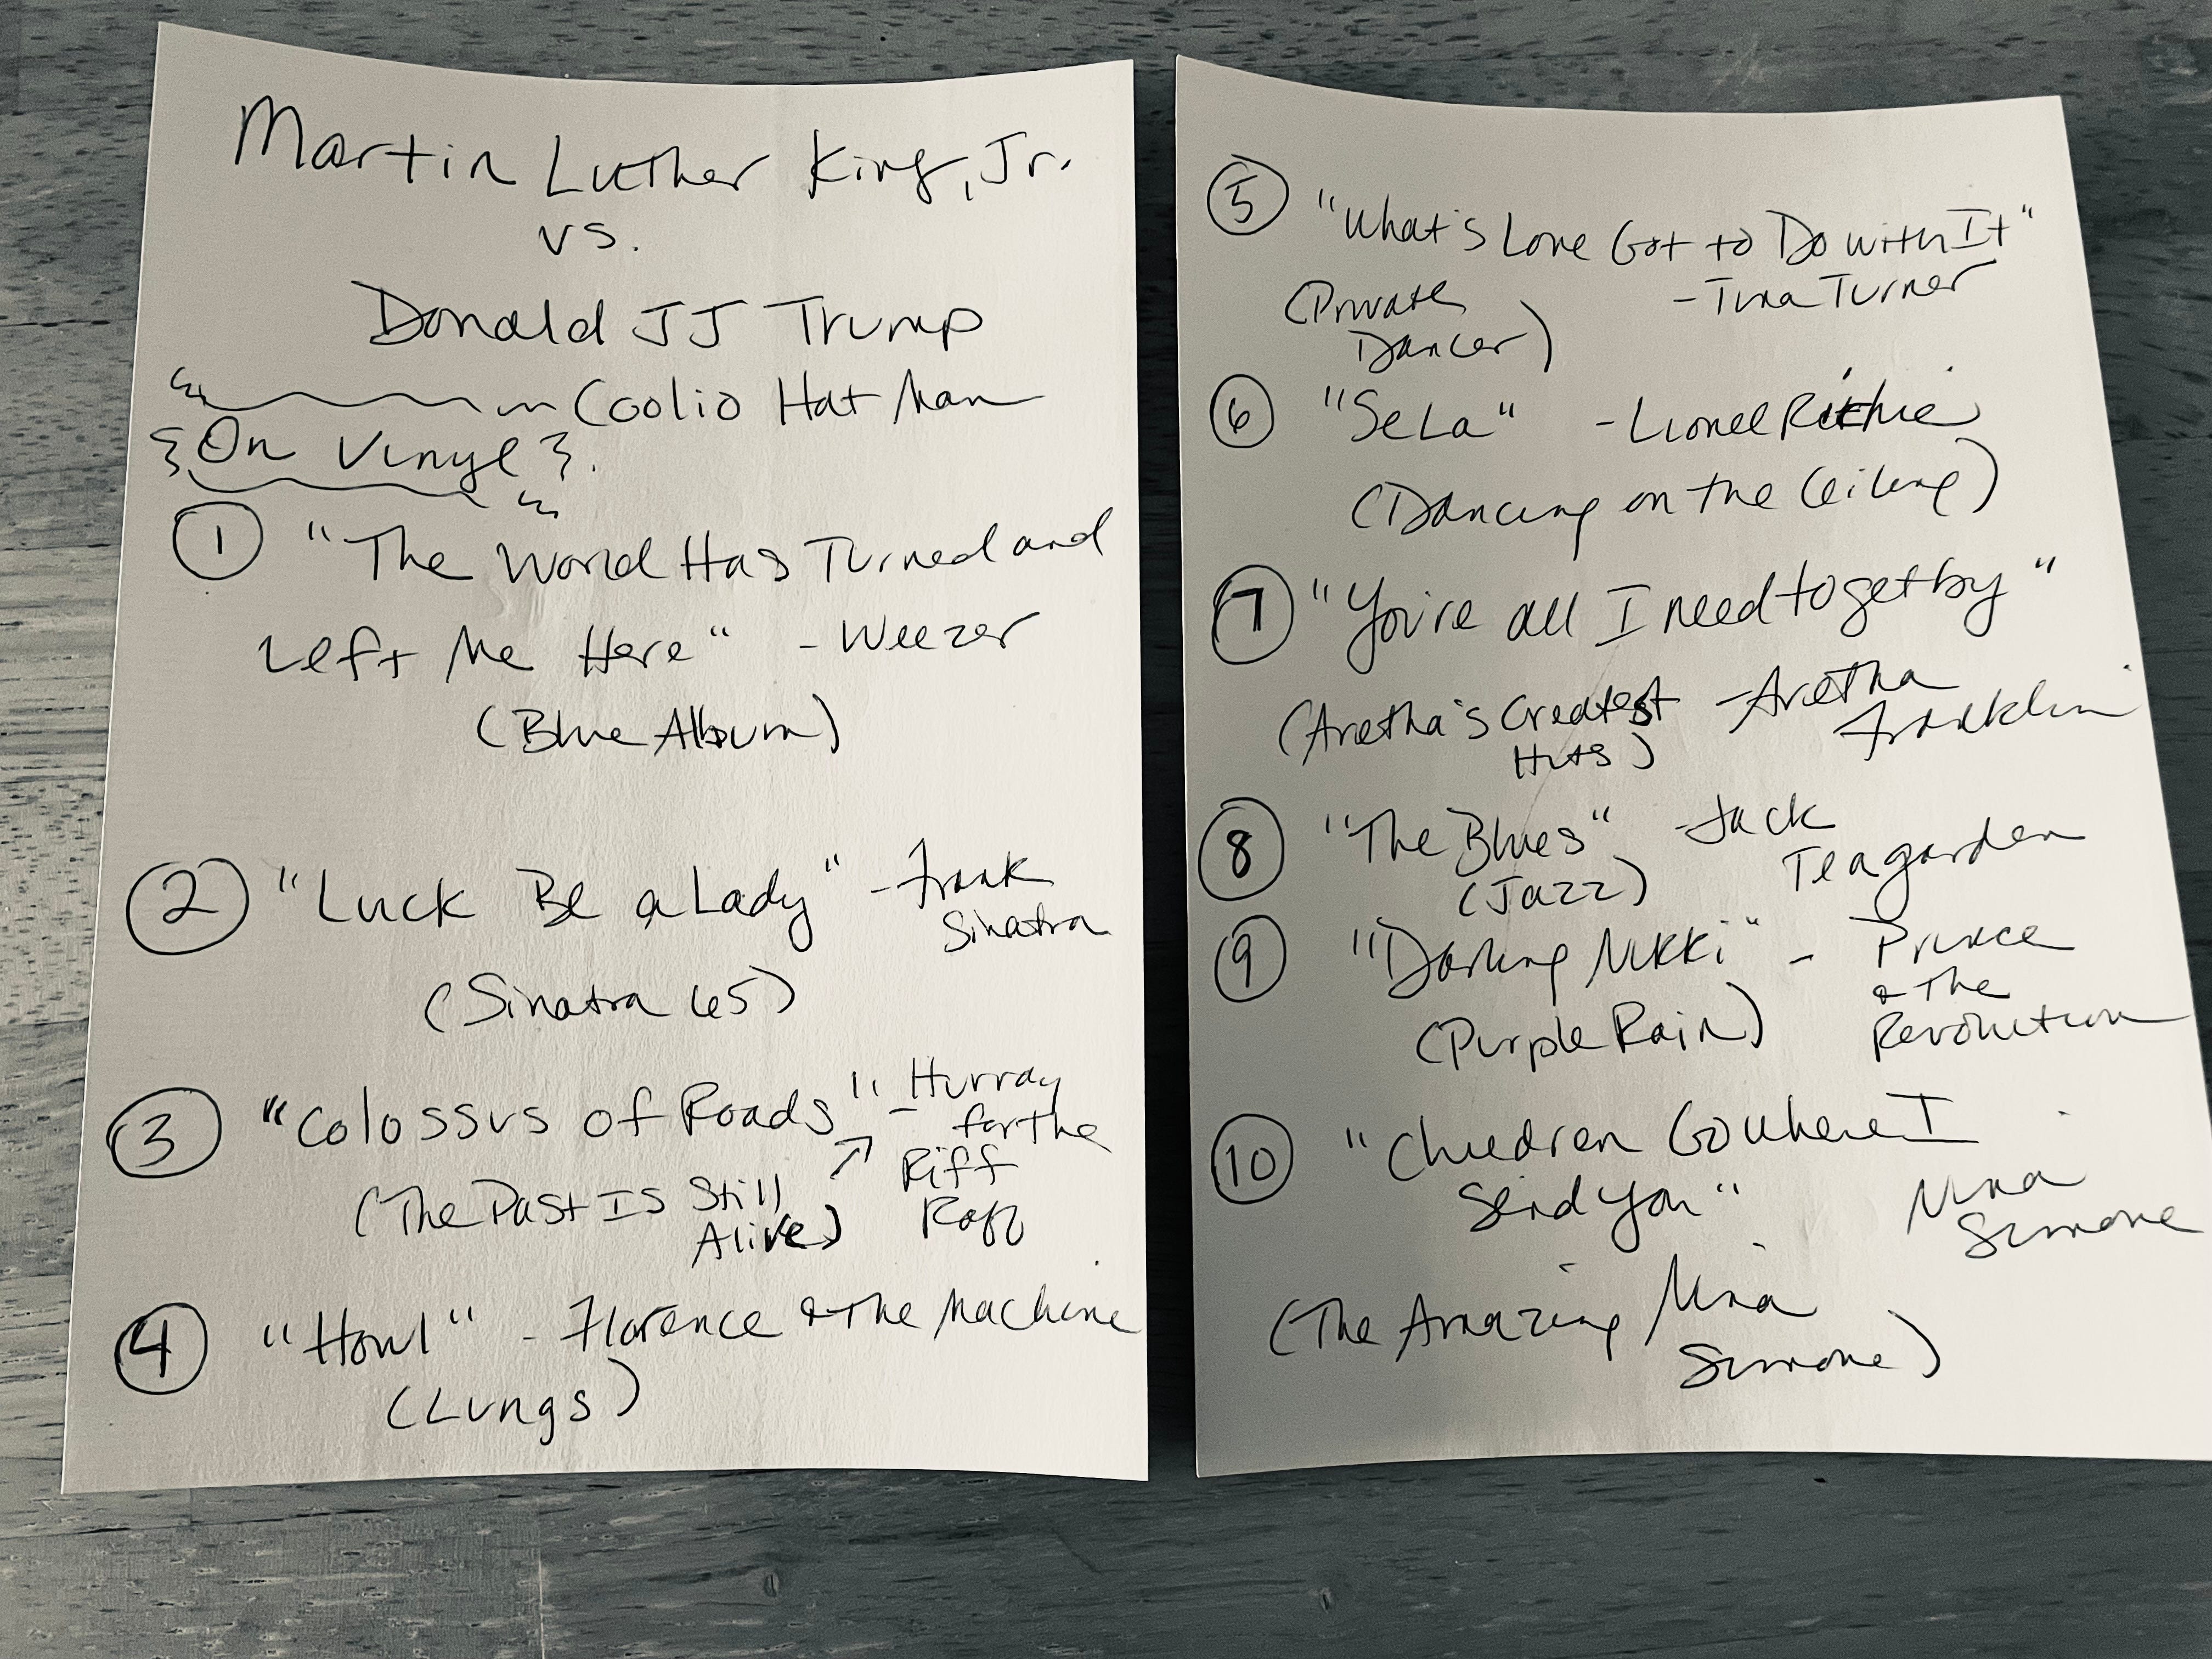 Martin Luther King, Jr.
vs.
Donald JJ Trump
- Coolio Hat Man
On Vinyl
1 "The World Has Turned and
Left Me Here" - Weezer
(Blue Album)
2 "Luck Be a Lady" - Frank
Sinatra
(Sinatra 65)
3 "Colossus of Roads" - Hurray
for the
Riff
Raff
(The Past Is Still
Alive)
4 "Howl" - Florence & The Machine
(Lungs)
5 "What's Love Got to Do with It"
- Tina Turner
(Private
Dancer)
6 "Se La" - Lionel Richie
(Dancing on the Ceiling)
7 "You're all I need to get by"
(Aretha's Greatest - Aretha
Hits) Franklin
8 "The Blues" - Jack
Teagarden
(Jazz)
9 "Darling Nikki" - Prince
& The
Revolution
(Purple Rain)
10 "Children Go Where I
Send You" Nina
Simone
(The Amazing Nina
Simone)